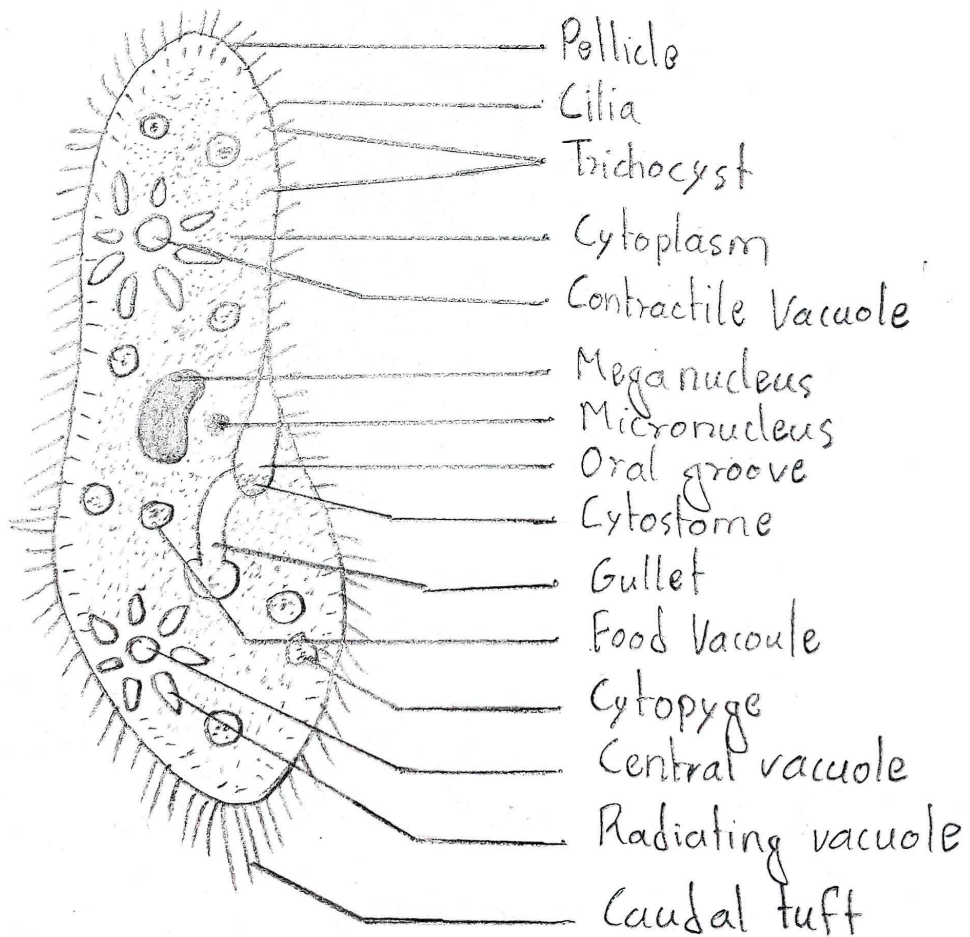 Pellicle
Cilia
Trichocyst
Cytoplasm
Contractile Vacuole
Meganucleus
Micronucleus
Oral groove
Cytostome
Gullet
Food Vacoule
Cytopyge
Central vacuole
Radiating vacuole
Caudal tuft